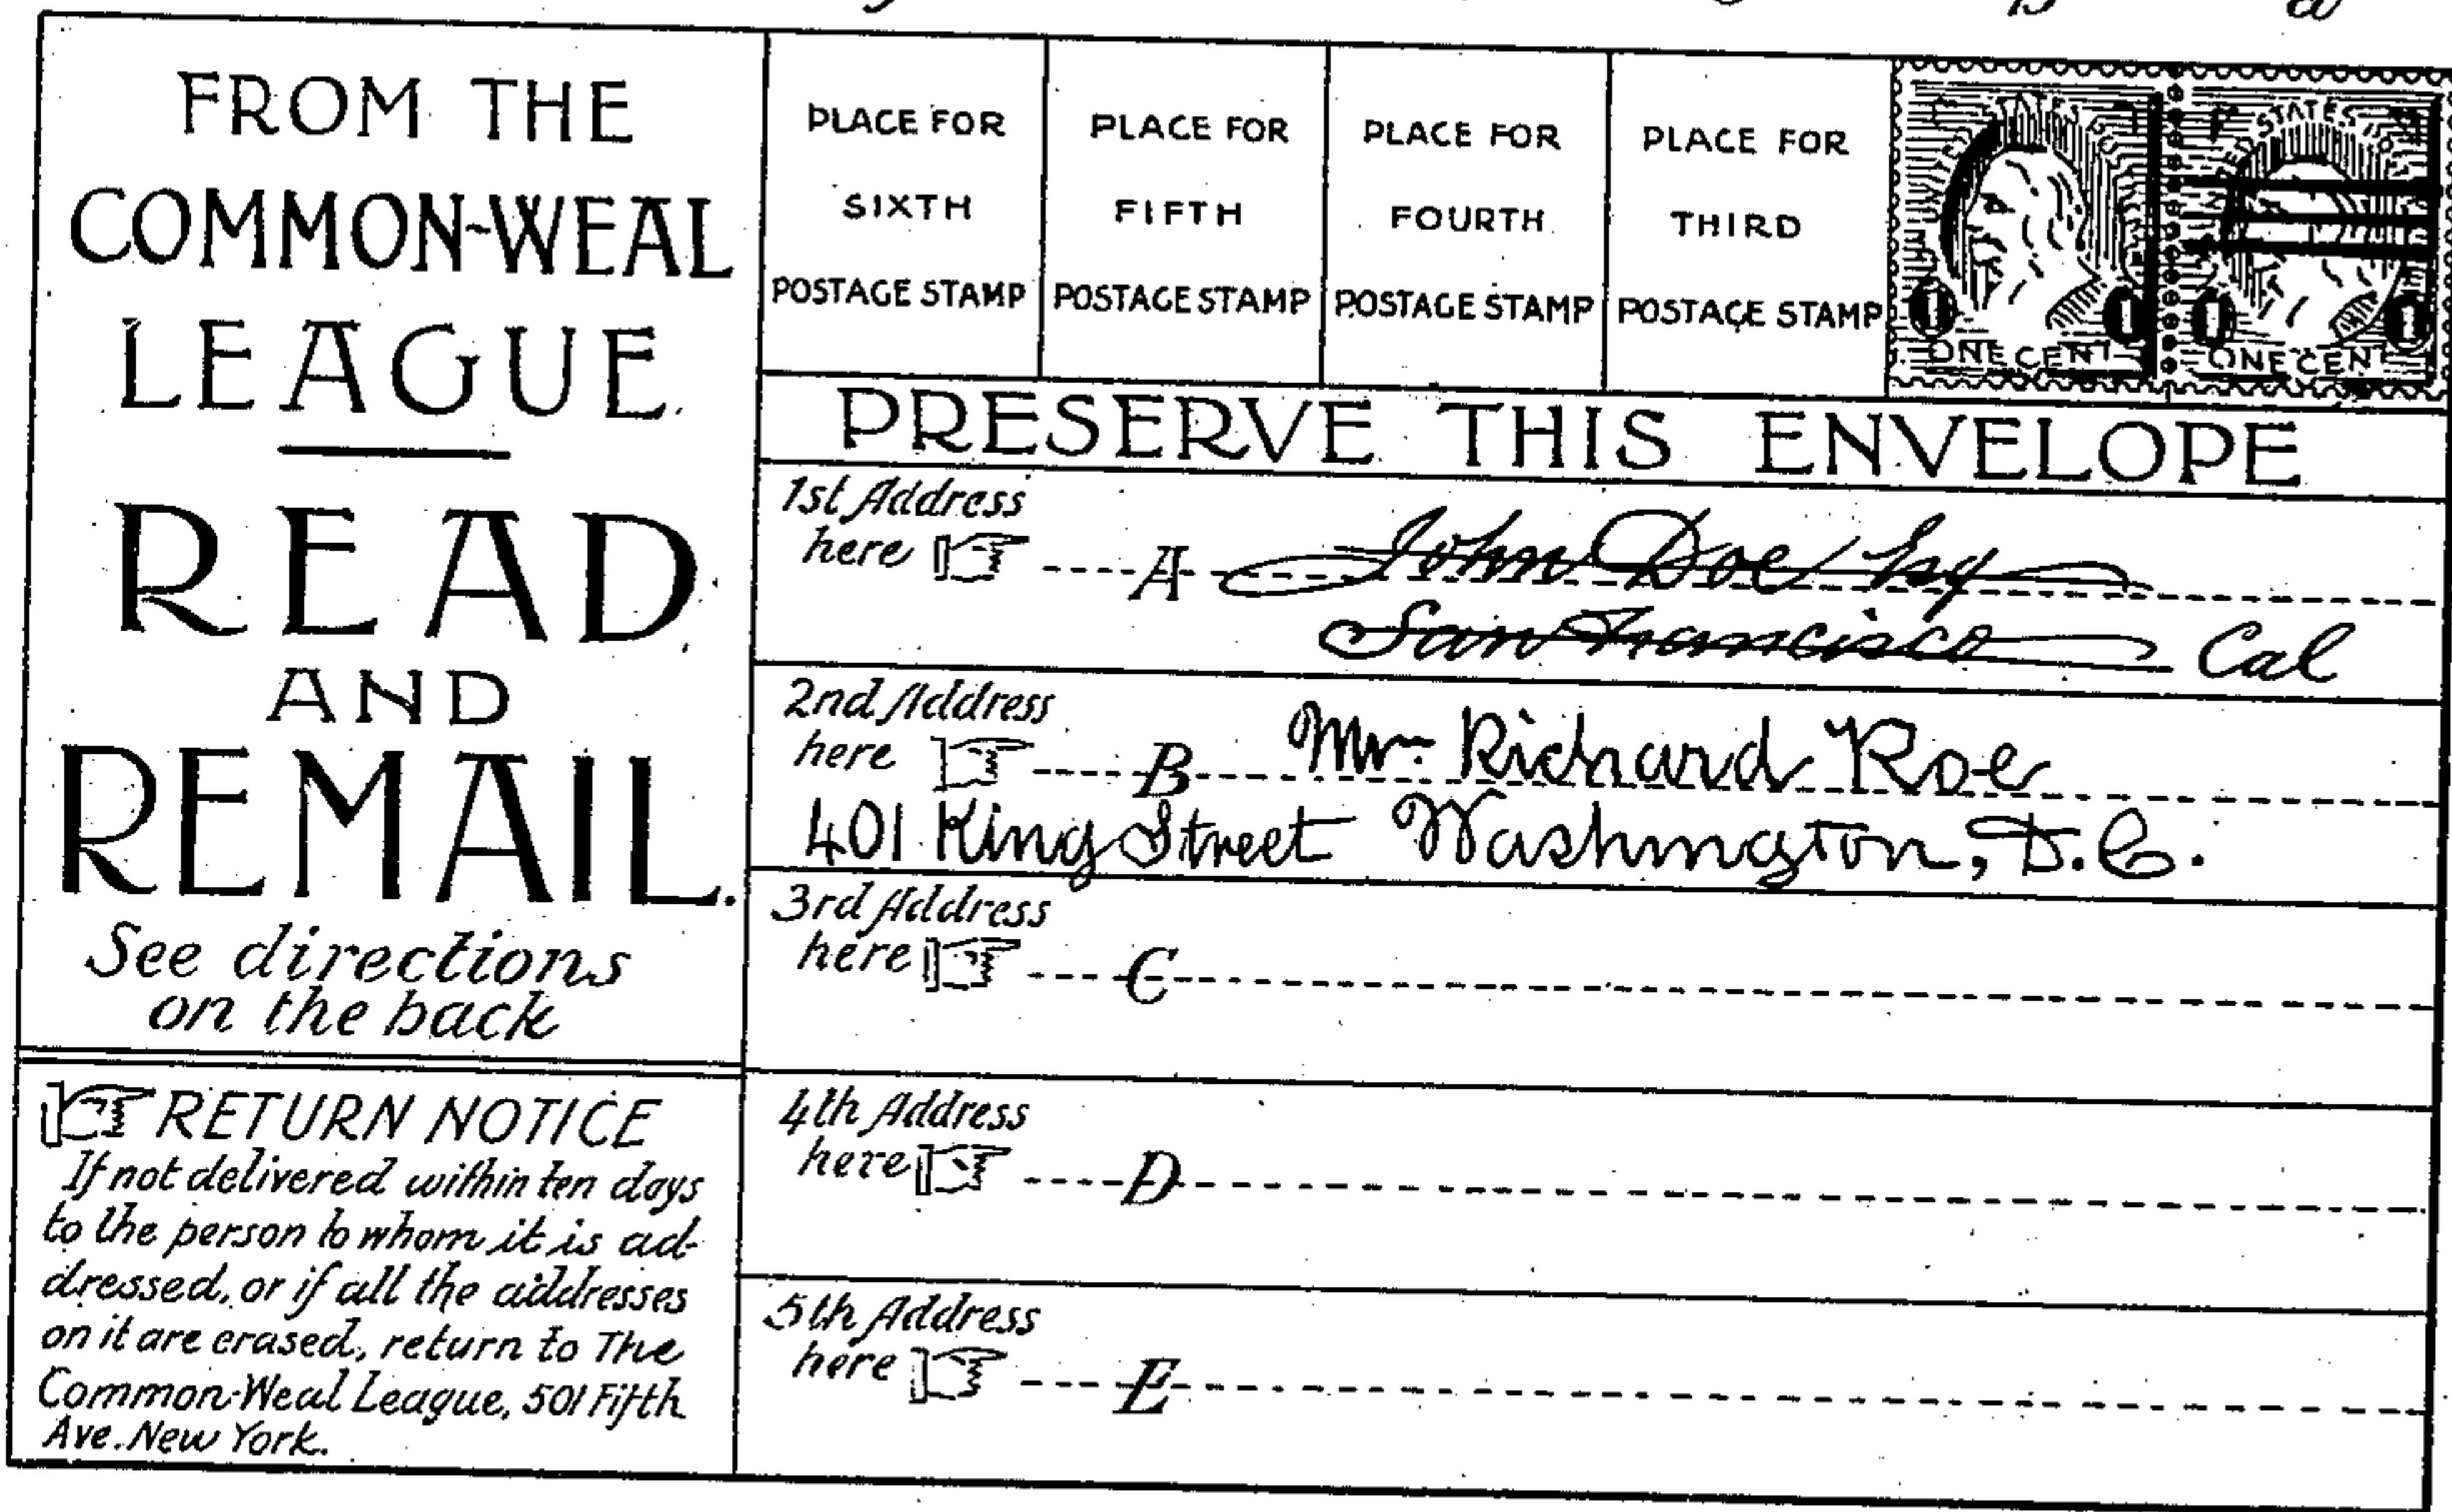 FROM THE
COMMON-WEAL
LEAGUE
READ
AND
REMAIL.
See directions
on the back
RETURN NOTICE
If not delivered within ten days
to the person to whom it is ad-
dressed, or if all the addresses
on it are erased, return to The
Common-Weal League, 501 Fifth
Ave. New York.
PLACE FOR
SIXTH
POSTAGE STAMP
PLACE FOR
FIFTH
POSTAGE STAMP
PLACE FOR
FOURTH
POSTAGE STAMP
PLACE FOR
THIRD
POSTAGE STAMP
ONE CENT
STATES
ONE CENT
PRESERVE THIS ENVELOPE
1st Address
here A John Doe Esq
San Francisco Cal
2nd Address
here B Mr. Richard Roe
401 King Street Washington, D.C.
3rd Address
here C
4th Address
here D
5th Address
here E